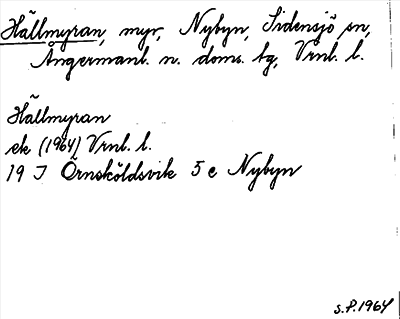 Hällmyran, myr, Nybyn, Sidensjö sn,
Ångermanl. n. doms. tg, Vrnl. l.
Hällmyran
ek (1964) Vrnl. l.
19 J Örnsköldsvik 5 e Nybyn
S.P. 1964